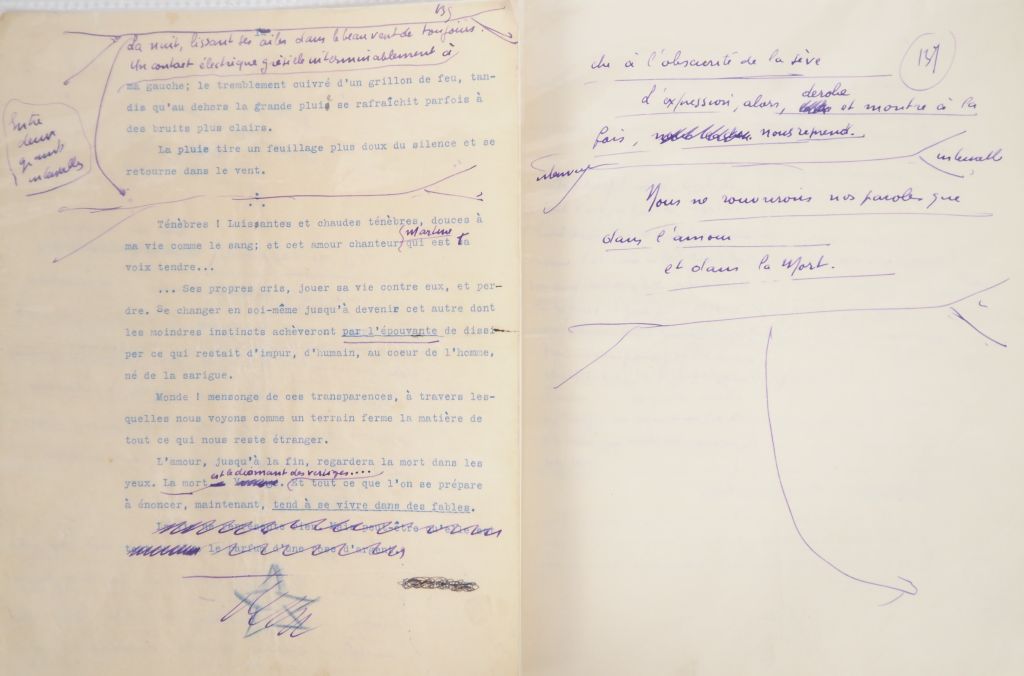 139
La nuit, lissant ses ailes dans le beau vent de toujours.
Un contact électrique grésille interminablement à
ma gauche; le tremblement cuivré d'un grillon de feu, tan-
dis qu'au dehors la grande pluie se rafraîchit parfois à
des bruits plus clairs.
La pluie tire un feuillage plus doux du silence et se
retourne dans le vent.
Entre
deux
grands
intervalles
Ténèbres ! Luisantes et chaudes ténèbres, douces à
ma vie comme le sang; et cet amour chanteur qui est ta
voix tendre...
... Ses propres cris, jouer sa vie contre eux, et per-
dre. Se changer en soi-même jusqu'à devenir cet autre dont
les moindres instincts achèveront par l'épouvante de dissi-
per ce qui restait d'impur, d'humain, au coeur de l'homme,
né de la sarigue.
Monde ! mensonge de ces transparences, à travers les-
quelles nous voyons comme un terrain ferme la matière de
tout ce qui nous reste étranger.
L'amour, jusqu'à la fin, regardera la mort dans les
est le diamant des vertiges....
yeux. La mort Et tout ce que l'on se prépare
à énoncer, maintenant, tend à se vivre dans des fables.
137
che à l'obscurité de la sève
dérobe
L'expression, alors, et montre à la
fois, nous reprend.
intervalle
Nous ne rouvrirons nos paroles que
dans l'amour
et dans la Mort.